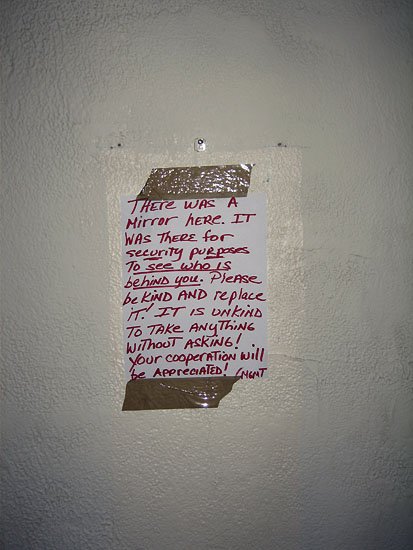 THERE WAS A
MIRROR HERE. IT
WAS THERE for
security purposes
To see who is
behind you. Please
be KIND AND replace
it! IT IS UNKIND
TO TAKE ANYTHING
WITHOUT ASKING!
Your cooperation will
be APPRECIATED! GMGMT